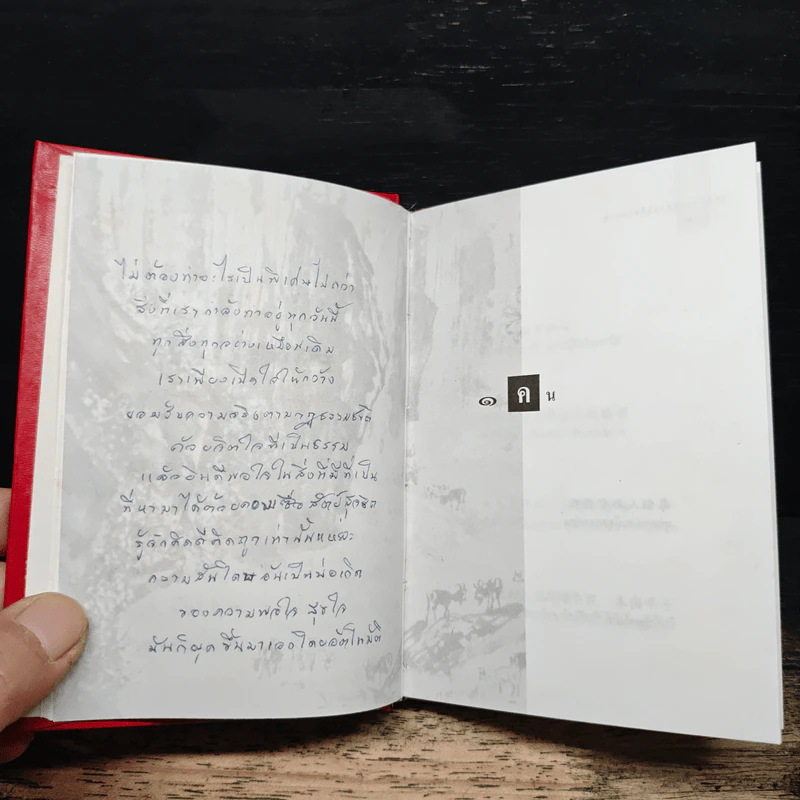 ไม่ต้องทำอะไรเป็นพิเศษไปกว่า
สิ่งที่เรากำลังทำอยู่ทุกวันนี้
ทุกสิ่งทุกอย่างเหมือนเดิม
เราเพียงเปิดใจให้กว้าง
ยอมรับความจริงตามกฎธรรมชาติ
ด้วยจิตใจที่เป็นธรรม
แล้วยินดีพอใจในสิ่งที่มีที่เป็น
ที่หามาได้ด้วยความซื่อสัตย์สุจริต
รู้จักคิดดีคิดถูกเท่านั้นแหละ
ความสันโดษอันเป็นบ่อเกิด
ของความพอใจ สุขใจ
มันก็ผุดขึ้นมาเองโดยอัตโนมัติ
๑ ค น